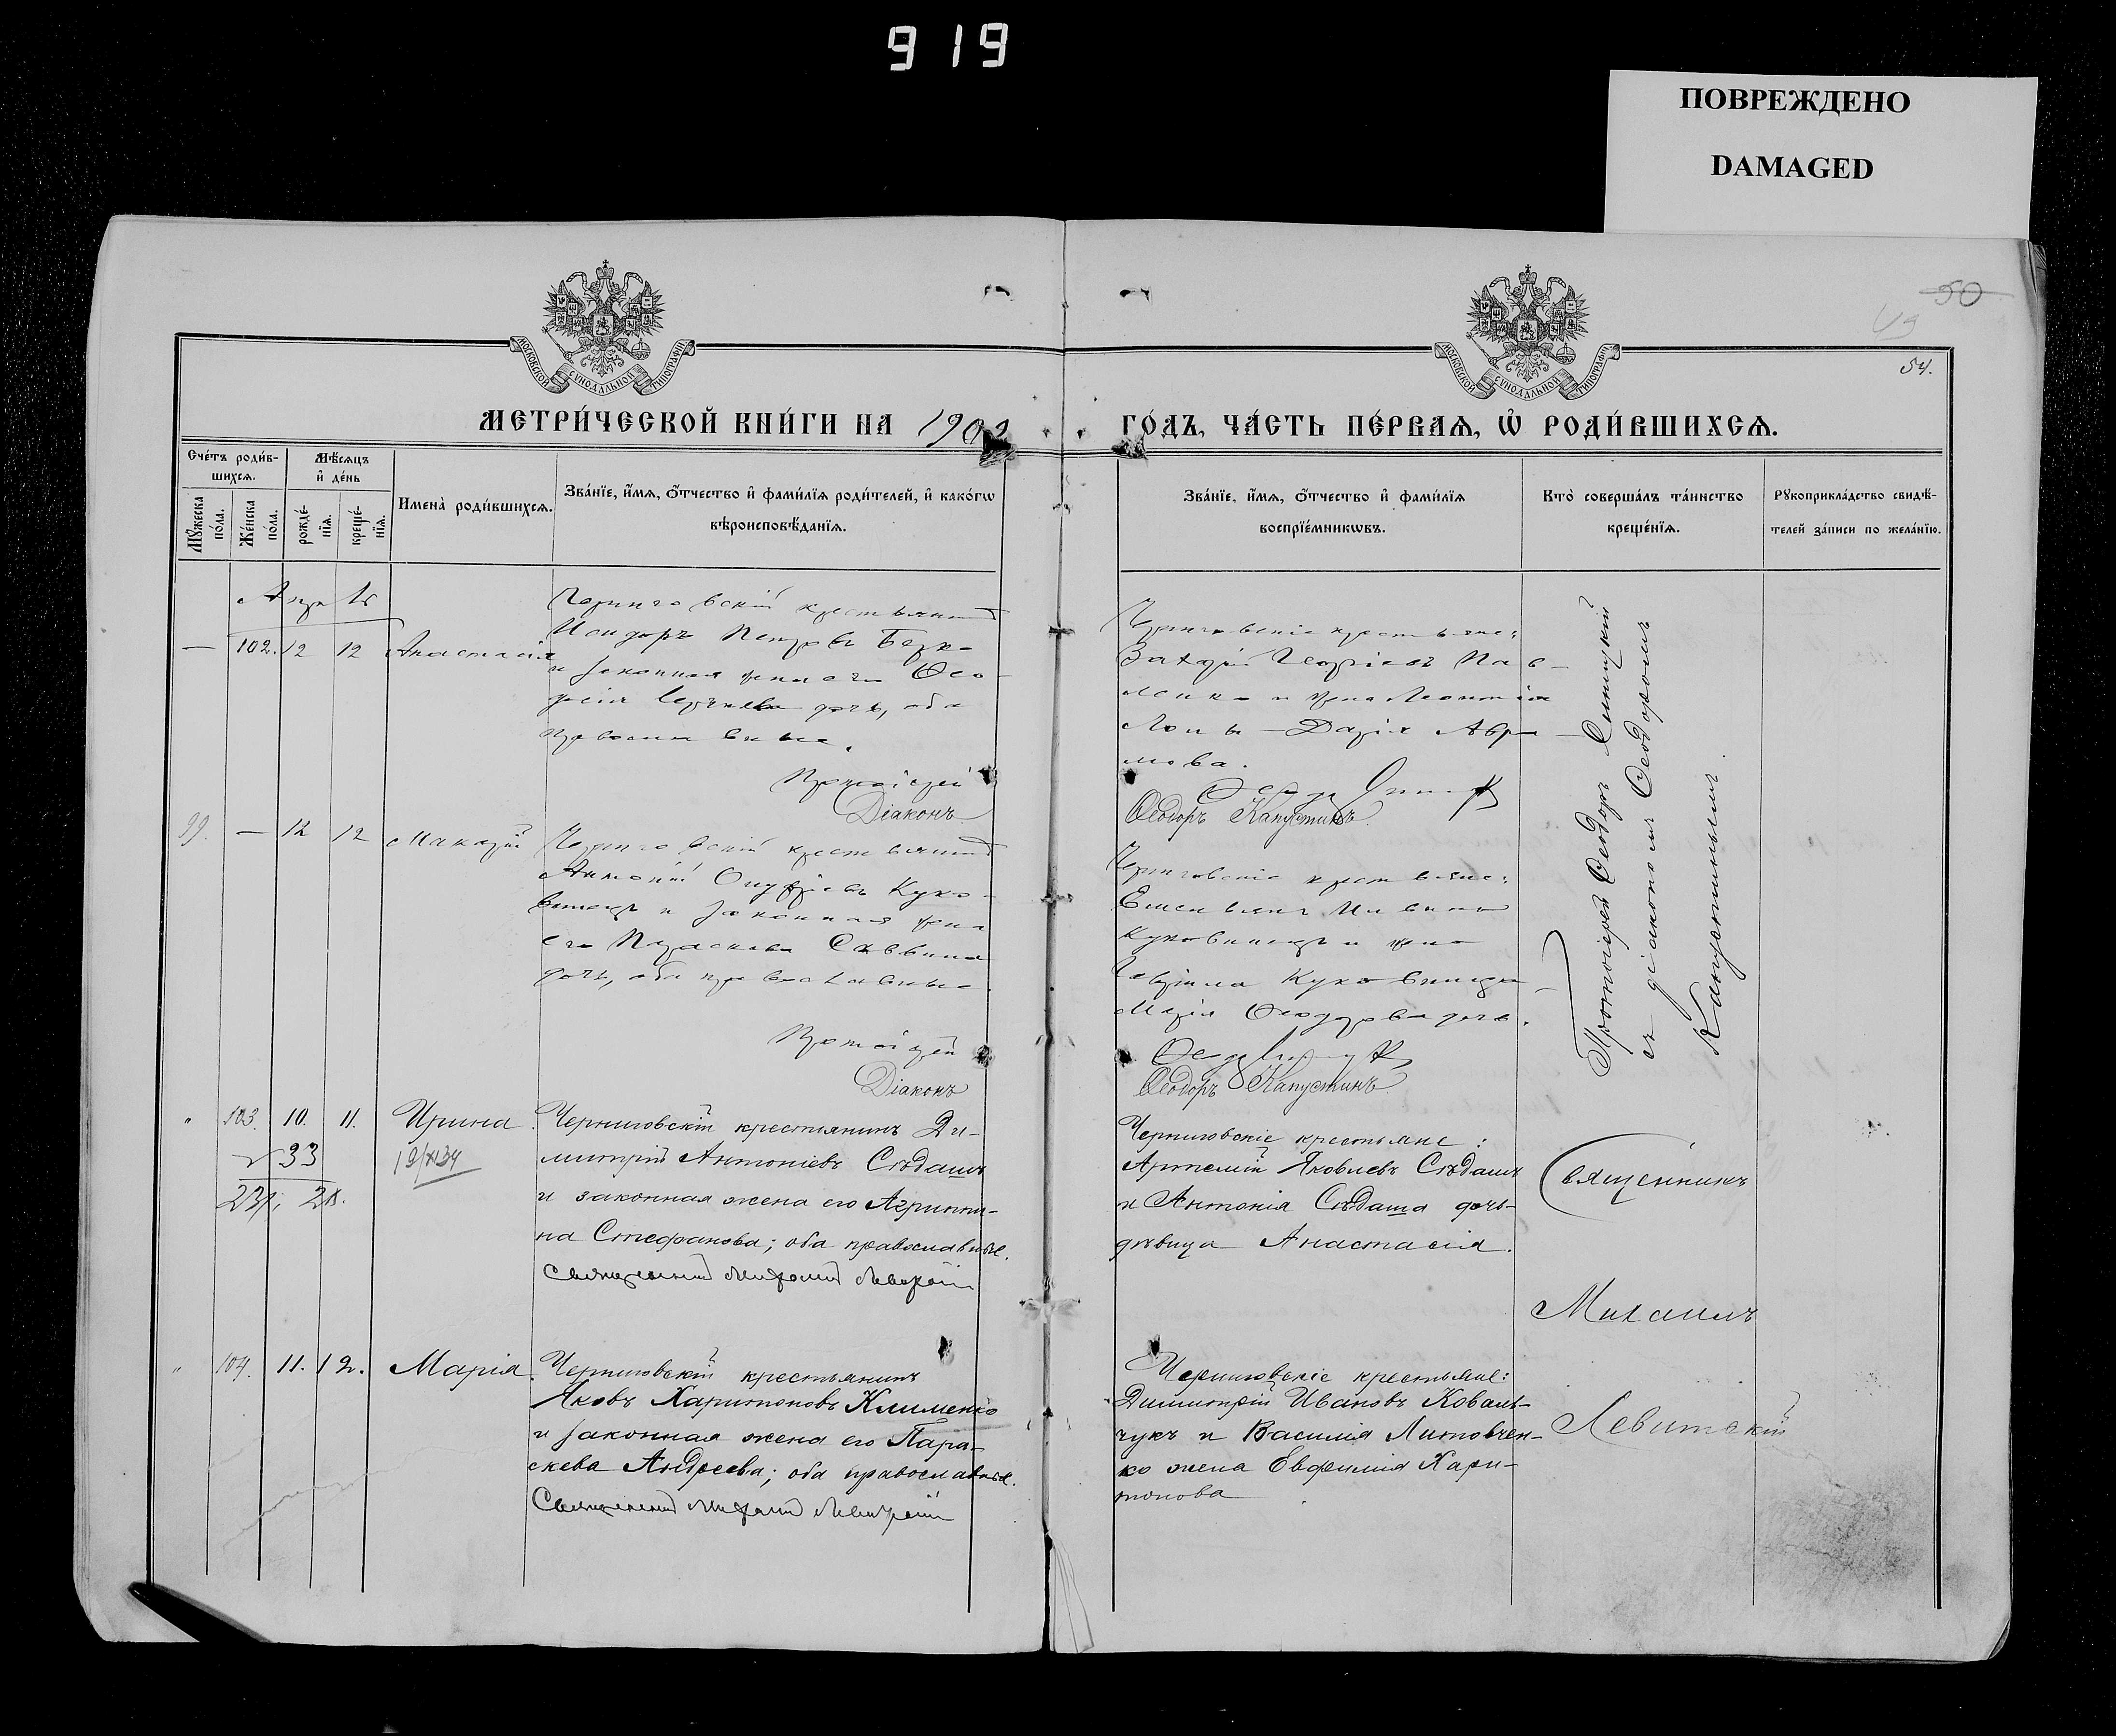 919
ПОВРЕЖДЕНО
DAMAGED
50
54.
МОСКОВСКОЙ СѴНОДАЛЬНОЙ ТИПОГРАФІИ
МОСКОВСКОЙ СѴНОДАЛЬНОЙ ТИПОГРАФІИ
МЕТРИ́ЧЕСКОЙ КНИ́ГИ НА 1902
ГО́ДЪ, ЧА́СТЬ ПЕ́РВАѦ, Ѡ҆ РОДИ́ВШИХСѦ.
Сче́тъ роди́в-
шихсѧ.
Мꙋ́жеска по́ла.
Же́нска по́ла.
Мѣ́сѧцъ
и҆ де́нь
рожде́-
нїѧ.
креще́-
нїѧ.
Имена̀ роди́вшихсѧ.
Зва́нїе, и҆́мѧ, ѻ҆́тчество и҆ фами́лїѧ роди́телей, и҆ како́гѡ
вѣроисповѣ́данїѧ.
Зва́нїе, и҆́мѧ, ѻ҆́тчество и҆ фами́лїѧ
воспрїе́мникѡвъ.
Кто̀ соверша́лъ та́инство
креще́нїѧ.
Рꙋкоприкла́дство свидѣ́-
телей за́писи по жела́нїю.
Апрль
— 102. 12 12 Анастасія
Черниговскій крестьянинъ
Исидоръ Петровъ
и законная жена его Ѳео-
досія дочь, оба
православные.
Протоіерей
Діаконъ
Черниговскіе крестьяне:
Захарій Георгіевъ Пав-
ленко и жена Леонтія
Дарія Авра-
мова.
Ѳеодоръ Капустинъ
99. — 12 12 Макарій
Черниговскій крестьянинъ
Антоній Онуфріевъ Куко-
и законная жена
его Параскева Саввина
дочь, оба православные.
Протоіерей
Діаконъ
Черниговскіе крестьяне:
и жена
Гавріила
Марія Ѳеодорова дочь.
Ѳеодоръ Капустинъ
Протоіерей Ѳеодоръ
съ діакономъ Ѳеодоромъ
Капустинымъ.
" 103. 10. 11. Ирина.
33
Черниговскій крестьянинъ Ди-
митрій Антоніевъ Сѣдашъ
и законная жена его Агрипи-
на Стефанова; оба православные.
Священникъ Михаилъ Левитскій
Черниговскіе крестьяне:
Артемій Яковлевъ Сѣдашъ
и Антонія Сѣдаша дочь-
дѣвица Анастасія.
Священникъ
Михаилъ
Левитскій
" 104. 11. 12. Марія.
Черниговскій крестьянинъ
Яковъ Харитоновъ Клименко
и законная жена его Пара-
скева Андреева; оба православные.
Священникъ Михаилъ Левитскій
Черниговскіе крестьяне:
Димитрій Ивановъ Коваль-
чукъ и Василія Литовчен-
ко жена Евфимія Хари-
тонова